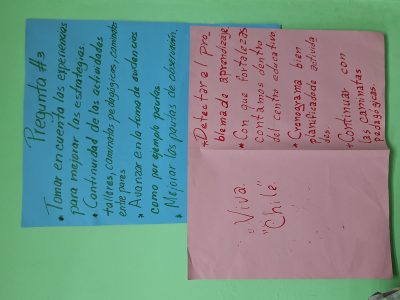 Pregunta #3
* Tomar en cuenta las experiencias
para mejorar las estrategias.
* Continuidad de las actividades
talleres, caminatas pedagógicas, caminatas
entre pares
* Avanzar en la toma de evidencias
como por ejemplo pautas
* Mejorar las pautas de observación,
* Detectar el pro
blema de aprendizaje
* Con que fortalezas
contamos dentro
del centro educativo
* Cronograma bien
planificado de activida
des.
* Continuar con
las caminatas
pedagógicas.
"Viva
Chile"